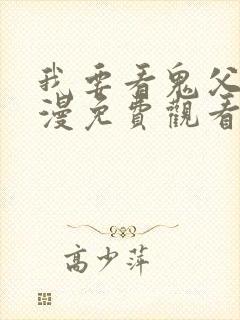 我要看鬼父
漫免費觀看
高少萍